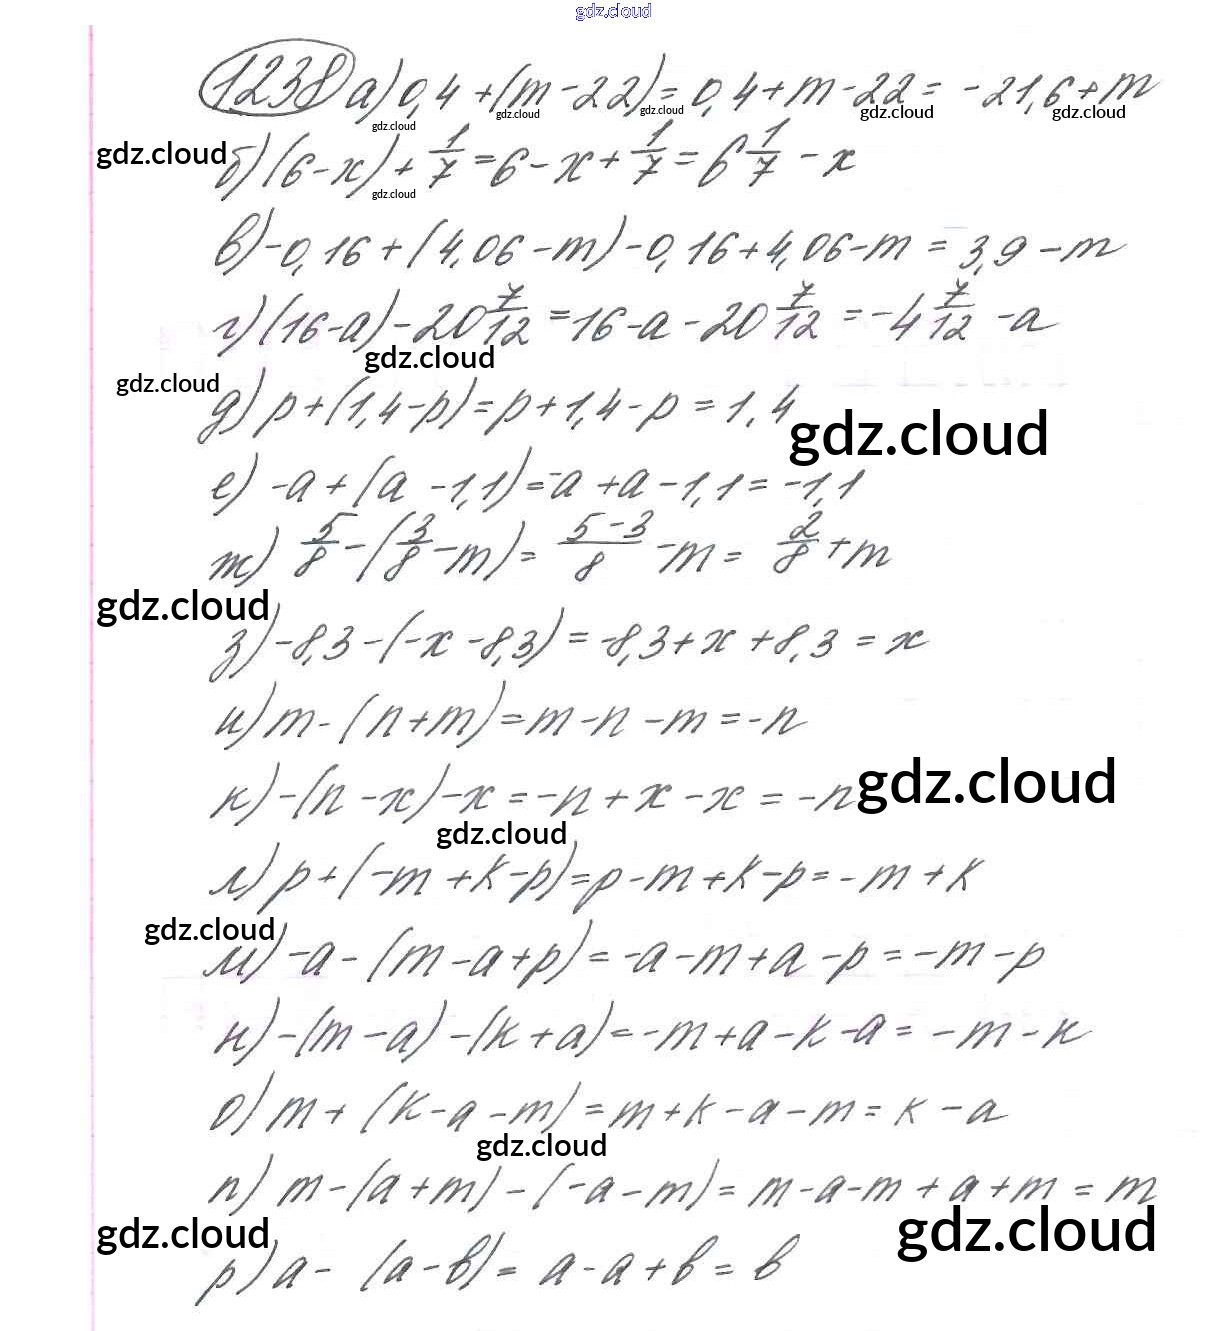 gdz.cloud
1238 а) 0,4 + (m - 22) = 0,4 + m - 22 = -21,6 + m
gdz.cloud gdz.cloud gdz.cloud gdz.cloud gdz.cloud
gdz.cloud б) (6 - x) + 1/7 = 6 - x + 1/7 = 6 1/7 - x
gdz.cloud
в) -0,16 + (4,06 - m) - 0,16 + 4,06 - m = 3,9 - m
г) (16 - a) - 20 7/12 = 16 - a - 20 7/12 = -4 7/12 - a
gdz.cloud
gdz.cloud
д) p + (1,4 - p) = p + 1,4 - p = 1,4
gdz.cloud
е) -a + (a - 1,1) = -a + a - 1,1 = -1,1
ж) 5/8 - (3/8 - m) = (5 - 3)/8 - m = 2/8 + m
gdz.cloud
з) -8,3 - (-x - 8,3) = -8,3 + x + 8,3 = x
и) m - (n + m) = m - n - m = -n
к) -(n - x) - x = -n + x - x = -n
gdz.cloud
gdz.cloud
л) p + (-m + k - p) = p - m + k - p = -m + k
gdz.cloud
м) -a - (m - a + p) = -a - m + a - p = -m - p
н) -(m - a) - (k + a) = -m + a - k - a = -m - k
о) m + (k - a - m) = m + k - a - m = k - a
gdz.cloud
п) m - (a + m) - (-a - m) = m - a - m + a + m = m
gdz.cloud gdz.cloud
р) a - (a - b) = a - a + b = b